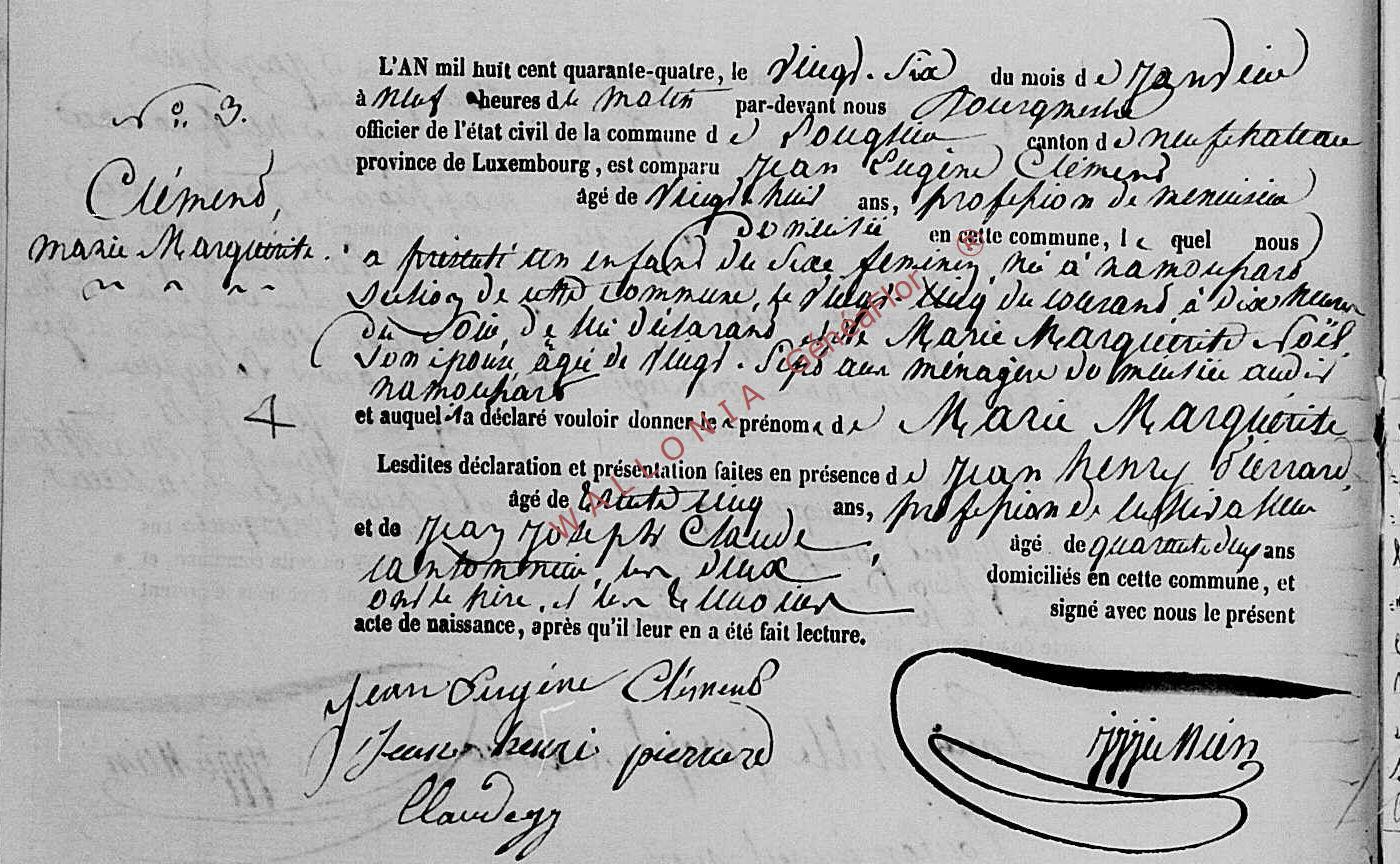 N° 3.
Clémend,
Marie Marguerite.
4
L'AN mil huit cent quarante-quatre, le vingt-six du mois de Janvier
à neuf heures de matin par-devant nous Bourgmestre
officier de l'état civil de la commune de canton de neufchateau
province de Luxembourg, est comparu Jean Eugène Clémend
âgé de vingt huit ans, profession de menuisier
domicilié en cette commune, le quel nous
a présenté un enfant du sexe feminin, né à namoussart
section de cette commune, le vingt-cinq du courant, à dix heures
du soir, de lui déclarant, et de Marie Marguerite Noël
son épouse âgée de vingt-sept ans ménagère domiciliée audit
namoussart
et auquel il a déclaré vouloir donner les prénoms de Marie Marguerite
Lesdites déclaration et présentation faites en présence de Jean henry Pierrard,
âgé de trente cinq ans, profession de cultivateur
et de Jean Joseph Claude, âgé de quarante deux ans
cantonnier, les deux domiciliés en cette commune, et
ont le père, et les témoins signé avec nous le présent
acte de naissance, après qu'il leur en a été fait lecture.
Jean Eugène Clémend
Jean henri pierrard
Claudejj
WALLONIA GénéaFlor ®